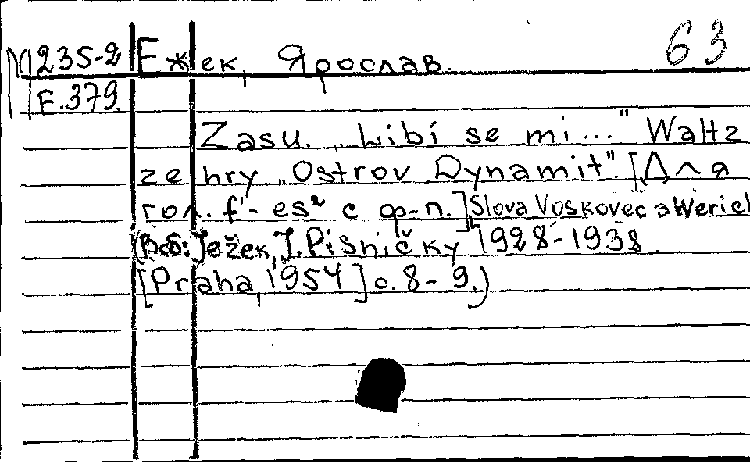 63
M 235-2 Ежек, Ярослав.
E.379
Zasu. „Libí se mi..." Waltz
ze hry „Ostrov Dynamit" [Для
гол. f'- es² с ф-п.] Slova Voskovec a Werich
(В сб: Ježek, J. Pisničky 1928-1938
[Praha, 1954] с. 8-9.)